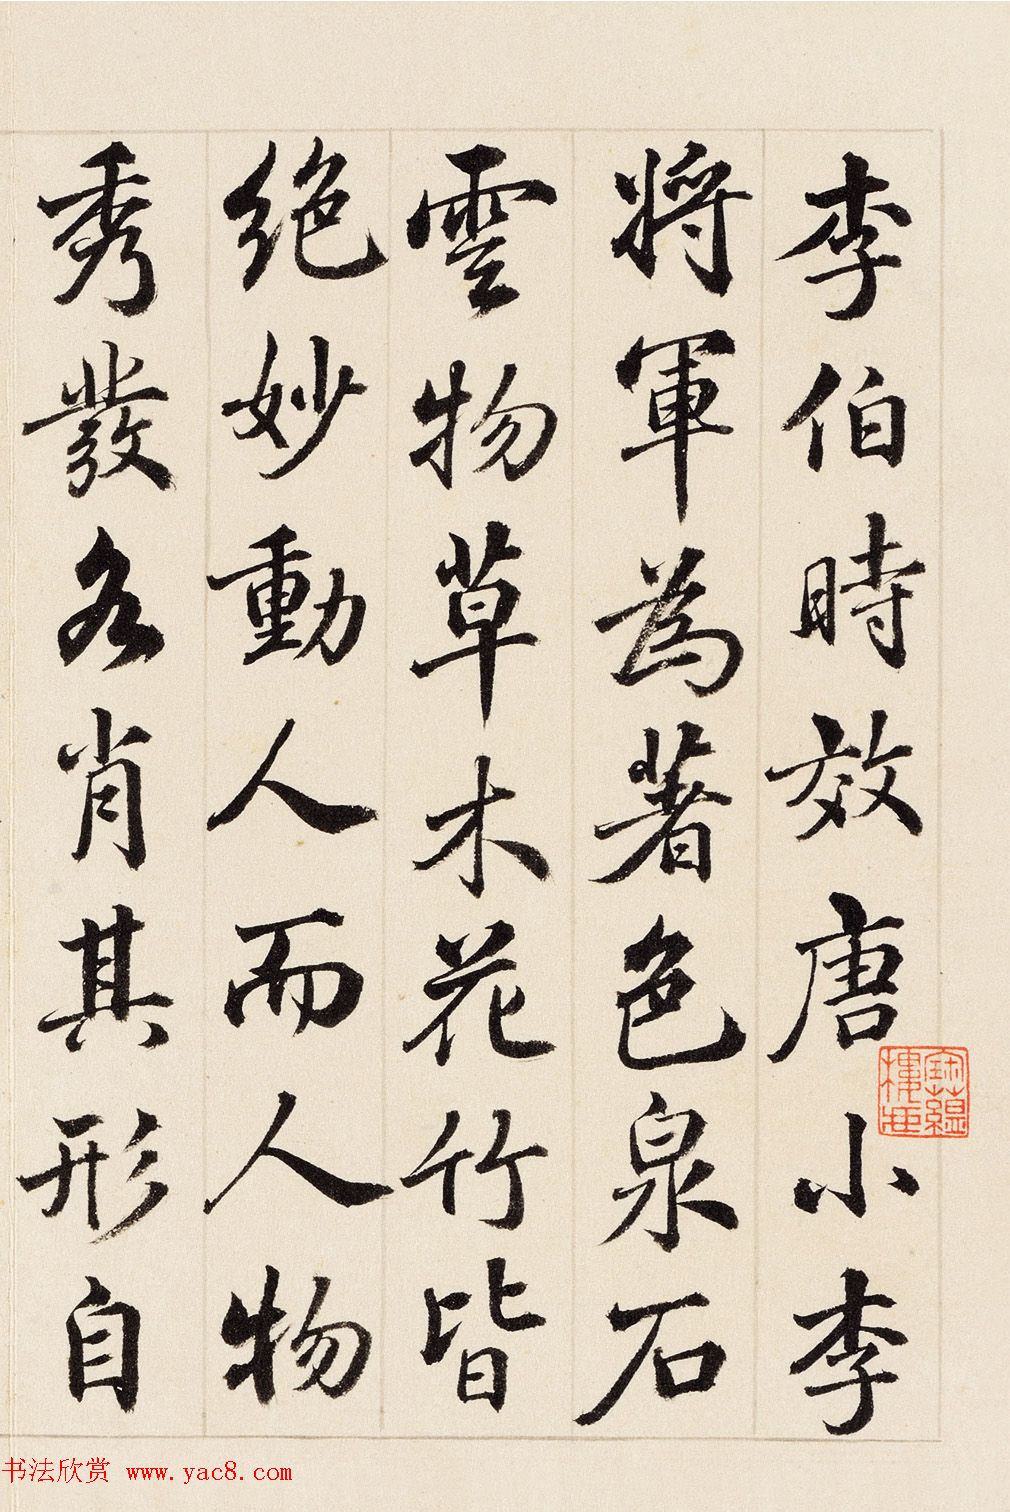 李伯時效唐小李
將軍為著色泉石
雲物草木花竹皆
絕妙動人而人物
秀發各肖其形自
书法欣赏 www.yac8.com